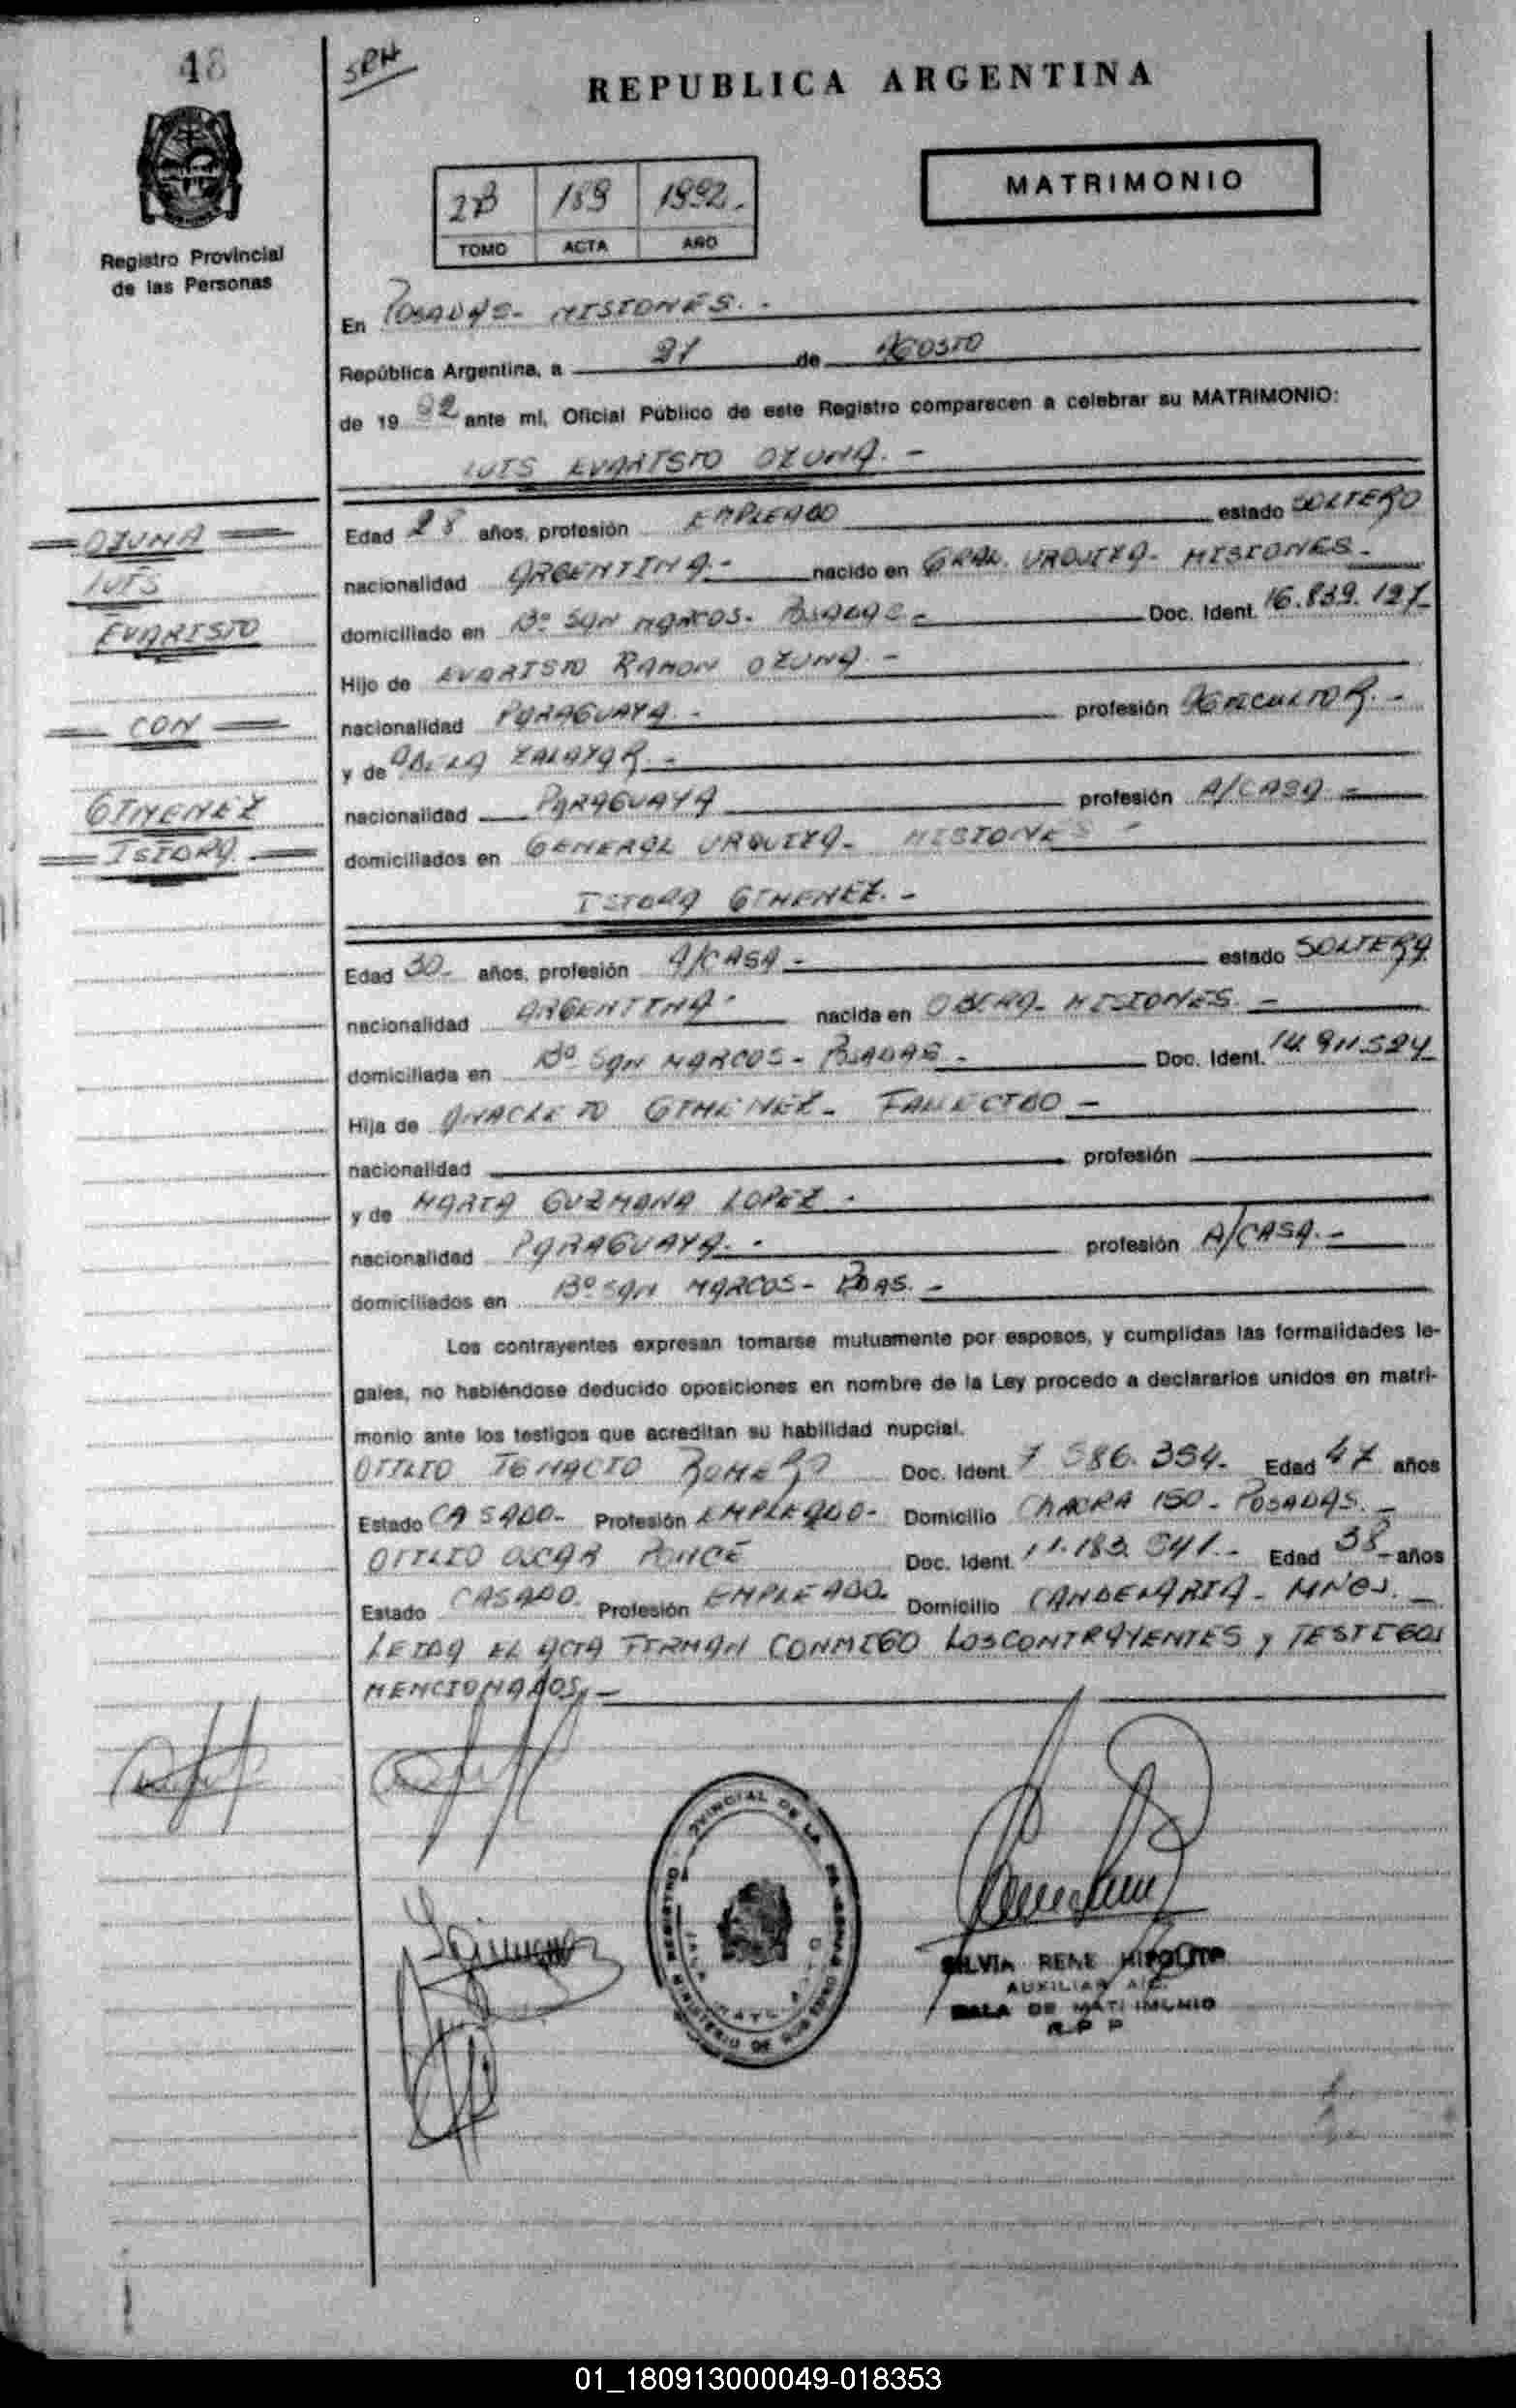 48
SRH
REPUBLICA ARGENTINA
MATRIMONIO
2B 189 1992.
TOMO ACTA AÑO
Registro Provincial
de las Personas
En POSADAS- MISIONES.-
República Argentina, a 21 de AGOSTO
de 19 92 ante mí, Oficial Público de este Registro comparecen a celebrar su MATRIMONIO:
LUIS EVARISTO OZUNA.-
OZUNA
LUIS
EVARISTO
CON
GIMENEZ
ISIDRA
Edad 28 años, profesión EMPLEADO estado SOLTERO
nacionalidad ARGENTINA.- nacido en GRAL. URQUIZA- MISIONES-
domiciliado en Bº SAN MARCOS- POSADAS- Doc. Ident. 16.839.127-
Hijo de EVARISTO RAMON OZUNA.-
nacionalidad PARAGUAYA.- profesión AGRICULTOR.-
y de ADELA ZALAZAR.-
nacionalidad PARAGUAYA profesión A/CASA-
domiciliados en GENERAL URQUIZA- MISIONES-
ISIDRA GIMENEZ.-
Edad 30- años, profesión A/CASA- estado SOLTERA
nacionalidad ARGENTINA- nacida en OBERA- MISIONES.-
domiciliada en Bº SAN MARCOS- POSADAS- Doc. Ident. 14.911.524
Hija de ANACLETO GIMENEZ- FALLECIDO-
nacionalidad profesión
y de MARIA GUZMANA LOPEZ.
nacionalidad PARAGUAYA.- profesión A/CASA.-
domiciliados en Bº SAN MARCOS- PDAS.-
Los contrayentes expresan tomarse mutuamente por esposos, y cumplidas las formalidades le-
gales, no habiéndose deducido oposiciones en nombre de la Ley procedo a declararlos unidos en matri-
monio ante los testigos que acreditan su habilidad nupcial.
OTILIO IGNACIO ROMERO Doc. Ident. 7 586.354- Edad 47 años
Estado CASADO- Profesión EMPLEADO- Domicilio CHACRA 150- POSADAS.-
OTILIO OSCAR PONCE Doc. Ident. 11.183.541.- Edad 38- años
Estado CASADO. Profesión EMPLEADO. Domicilio CANDELARIA- MNES.-
LEIDA EL ACTA FIRMAN CONMIGO LOS CONTRAYENTES y TESTIGOS
MENCIONADOS.-
SILVIA RENE HIPOLITO
AUXILIAR
SALA DE MATRIMONIO
R P P
01_180913000049-018353